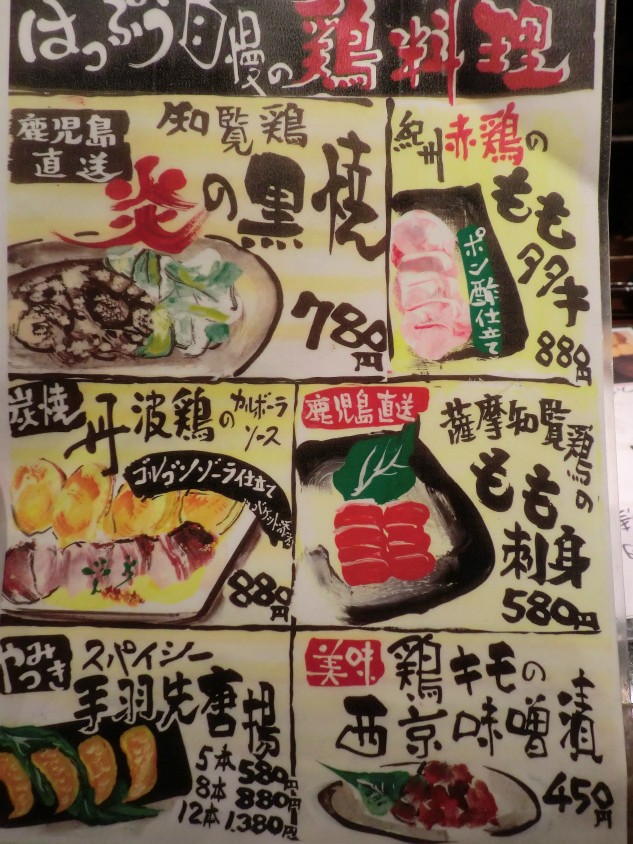 はっぷう自慢の鶏料理
鹿児島
直送
知覧鶏
炎の黒焼
780円
紀州赤鶏の
ももタタキ
ポン酢仕立て
880円
炭焼
丹波鶏の
カルボーラ
ソース
ゴルゴンゾーラ仕立て
880円
鹿児島直送
薩摩知覧鶏の
もも
刺身
580円
やみ
つき
スパイシー
手羽先唐揚
5本 580円
8本 880円
12本 1.380円
美味
鶏キモの
西京味噌漬
450円